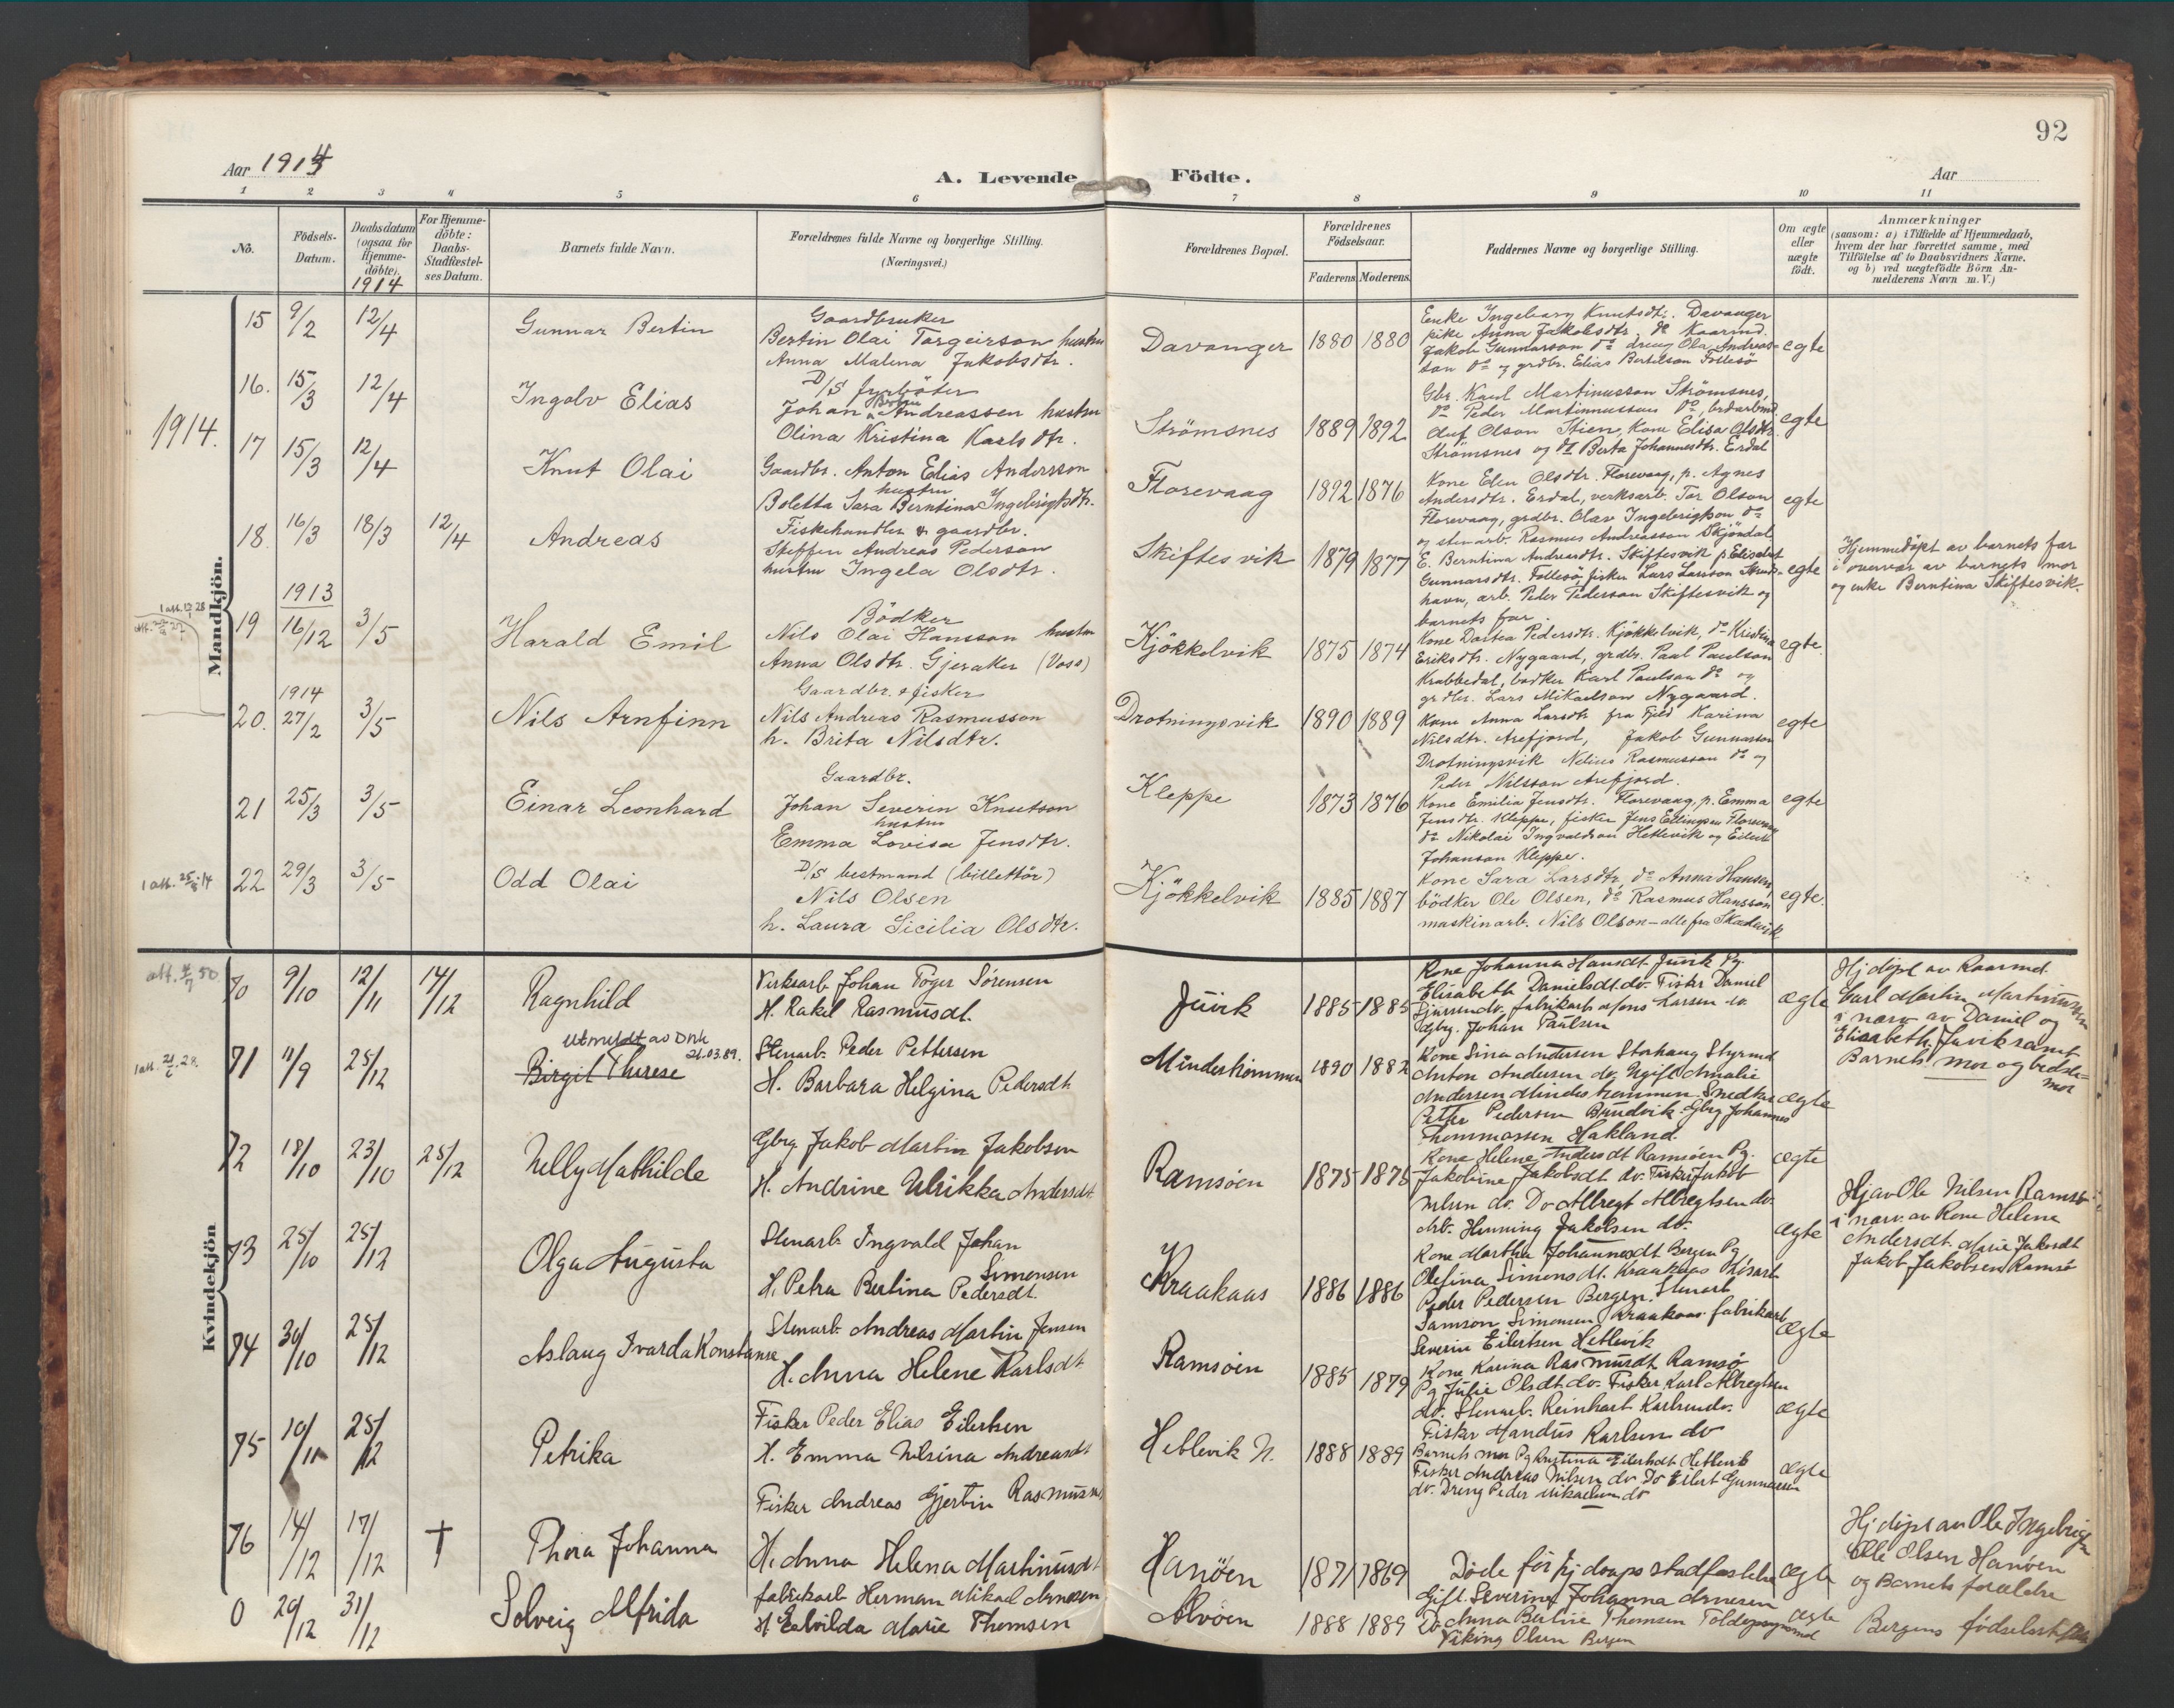 92
Aar 1914
A. Levende Födte.
Aar
1 2 3 4 5 6 7 8 9 10 11
No.
Födsels-
Datum.
Daabsdatum
(ogsaa for
Hjemme-
döbte).
1914
For Hjemme-
döbte:
Daabs-
Stadfæstel-
ses Datum.
Barnets fulde Navn.
Forældrenes fulde Navne og borgerlige Stilling.
(Næringsvei.)
Forældrenes Bopæl.
Forældrenes
Födselsaar.
Faderens Moderens.
Faddernes Navne og borgerlige Stilling.
Om ægte
eller
uægte
födt.
Anmærkninger
(saasom: a) i Tilfælde af Hjemmedaab,
hvem der har forrettet samme, med
Tilföielse af to Daabsvidners Navne.
og b) ved uægtefödte Börn An-
melderens Navn m. V.)
Mandkjön.
1914.
15 9/2 12/4 Gunnar Bertin
Gaardbruker
Bertin Olai Torgeirson hustru
Anna Malena Jakobsdtr.
Davanger 1880 1880
Enke Ingeborg Knutsdtr. Davanger
pike Anna Jakobsdtr. do Kaarmd.
Jakob Gunnarson do dreng Ola Andreas-
son do og grdbr. Elias Bertilson Follesö
egte
16. 15/3 12/4 Ingolv Elias
D/S fyrböter
Johan Andreassen hustru
Olina Kristina Karlsdtr.
Strömsnes 1889 1892
Gbr. Karl Martinusson Strömsnes,
do Peder Martinnussen do,
Oluf Olson Stien, Kone Elisa Olsdtr.
Strömsnes og do Berta Johannesdtr. Erdal
egte
17 15/3 12/4 Knut Olai
Gaardbr. Anton Elias Andersson
hustru
Boletta Sara Berntina Ingebrigtsdtr.
Florevaag 1892 1876
Kone Elen Olsdtr. Florevaag, p. Agnes
Andersdtr. Erdal, verksarb. Tor Olson
Florevaag, grdbr. Olav Ingebrigtson do
og stenarb. Rasmus Andreasson Skjöndal
egte
18. 16/3 18/3 12/4 Andreas
Fiskehandler & gaardbr.
Steffen Andreas Pederson
hustru Ingela Olsdtr.
Skiftesvik 1879 1877
E. Berntina Andreasdtr. Skiftesvik p. Elisabet
Gunnarsdtr. Follesö, fisker Lars Larsson
havn, arb. Peder Pederson Skiftesvik og
barnets far.
egte
Hjemmedöpt av barnets far
i overvær av barnets mor
og enke Berntina Skiftesvik.
1913
19 16/12 3/5 Harald Emil
Bödker
Nils Olai Hansson hustru
Anna Olsdtr. Gjeraker (Voss)
Kjökkelvik 1875 1874
Kone Dortea Pedersdtr. Kjökkelvik, do Kristina
Eriksdtr. Nygaard, grdbr. Paul Paulson
Krabbedal, bödker Karl Paulson do og
grdbr. Lars Mikaelson Nygaard.
egte.
1914
20. 27/2 3/5 Nils Arnfinn
Gaardbr. & fisker
Nils Andreas Rasmusson
h. Brita Nilsdtr.
Drotningsvik 1890 1889
Kone Anna Larsdtr fra Fjeld Karina
Nilsdtr. Arefjord, Jakob Gunnarson
Drotningsvik Nelius Rasmusson do og
Peder Nilsson Arefjord.
egte
21 25/3 3/5 Einar Leonhard
Gaardbr.
Johan Severin Knutson
hustru
Emma Lovisa Jensdtr.
Kleppe 1873 1876
Kone Emilia Jensdtr. Florevaag, p. Emma
Jensdtr. Kleppe, fisker Jens Ellingsen Florevaag
do Nikolai Ingvaldson Hetlevik og Eilert
Johanson Kleppe.
egte
22 29/3 3/5 Odd Olai
D/S bestmand (billettör)
Nils Olsen
h. Laura Sicilia Olsdtr.
Kjökkelvik 1885 1887
Kone Sara Larsdtr, do Anna Hansen,
bödker Ole Olsen, do Rasmus Hansson
maskinarb. Nils Olson – alle fra Skaalevik
egte.
Kvindekjön
70 9/10 12/11 14/12 Ragnhild
Verksarb Johan Töger Sörensen
H. Rakel Rasmusdt.
Juvik 1885 1885
Kone Johanna Hansdt Juvik Pg.
Elisabeth Danielsdt. do. Fisker Daniel
fabrikarb Mons Larsen do.
Gbrg. Johan Paulsen
ægte
Hj döpt av Kaarmd.
Carl Martin Martinussen
i nærv av Daniel og
Elisabeth Juvik samt
Barnets mor og bedste-
mor
71 11/9 25/12 Birgit Therese
Utmeldt av Dnk
21.03.89.
Stenarb. Peder Pettersen
H. Barbara Helgina Pedersdt
Mindeströmmen 1890 1882
Kone Sina Andersen Storhaug Styrmd
Anton Andersen do. Ugift Amalie
Andersen Mindeströmmen Snedker
Petter Pedersen Brudvik Gbrg Johannes
Thommassen Hakland.
ægte
72 18/10 23/10 25/12 Nelly Mathilde
Gbrg Jakob Martin Jakobsen
H. Andrine Ulrikka Andersdt
Ramsöen 1875 1875
Kone Helene Andersdt Ramsöen Pg.
Jakobine Jakobsdt do. Fisker Jakob
Nilsen do. Do Albregt Albregtsen do.
Arb. Henning Jakobsen do.
ægte
Hj av Ole Nilsen Ramsö
i nærv. av Kone Helene
Andersdt. Marie Jakobsdt
Jakob Jakobsen Ramsö
73 25/10 25/12 Olga Augusta
Stenarb. Ingvald Johan
Simonsen
H. Petra Bertina Pedersdt.
Kraakaas 1886 1886
Kone Martha Johannesdt Bergen Pg.
Olefina Simonsdt. Kraakaas Lösarb
Peder Pedersen Bergen Stenarb
Samson Simonsen Kraakaas fabrikarb
Severin Eilertsen Hetlevik
ægte
74 30/10 25/12 Aslaug Ivarda Konstanse
Stenarb Andreas Martin Jensen
H. Anna Helene Karlsdt
Ramsöen 1885 1879
Kone Karina Rasmusdt Ramsö
Pg Julie Olsdt. do. Fisker Karl Albregtsen
do. Stenarb. Reinhart Karlsen do.
Fisker Mandus Karlsen do
ægte
75 10/11 25/12 Petrika
Fisker Peder Elias Eilertsen
H. Emma Nilsina Andreasdt
Hetlevik N. 1888 1889
Barnets mor Pg Kristina Eilertsdt Hetlevik
Fisker Andreas Nilsen do Do Eilert Gunnarsen
do. Dreng Peder Mikaelsen do
ægte
76 14/12 17/12 † Thora Johanna
Fisker Andreas Gjertin Rasmussen
H. Anna Helena Martinusdt
Hanöen 1871 1869
Döde för hj daaps stadfestelse
ægte
Hj döpt av Ole Ingebrigtsen
Ole Olsen Hanöen
og Barnets forældre
0 29/12 31/12 Solveig Alfrida
fabrikarb Herman Mikael Arnesen
H Marie Thomsen
Alvöen 1888 1889
Gift. Severine Johanna Arnesen
Do Anna Bertine Thomsen
Viking Olsen Bergen
ægte
Bergens födselsstiftelse